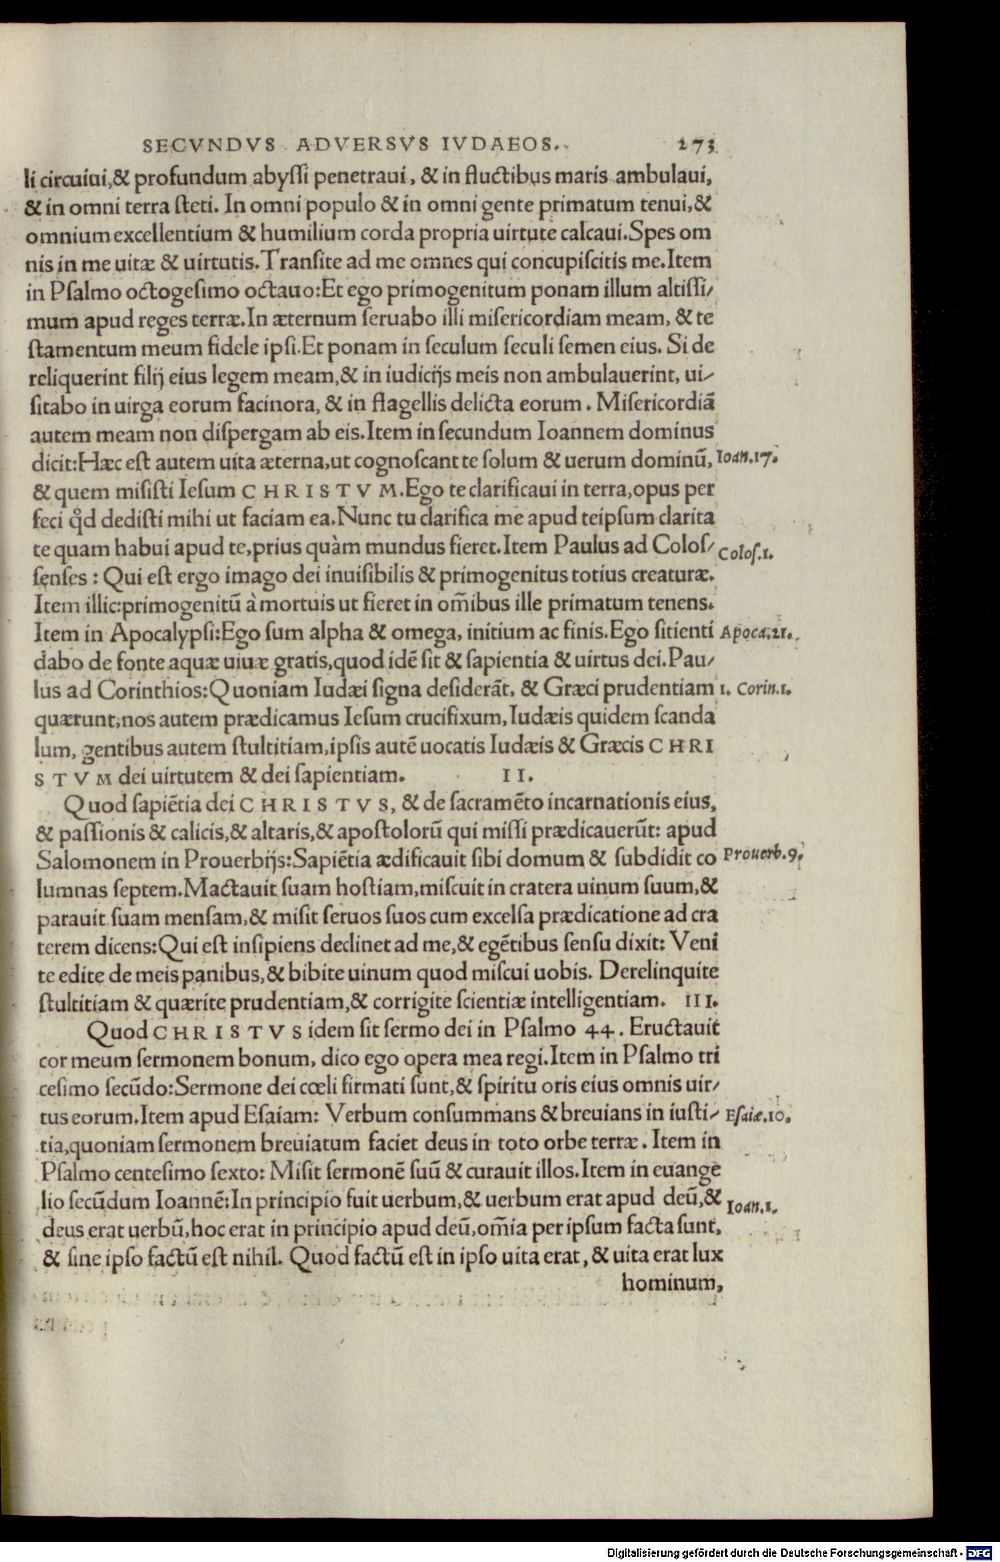 SECVNDVS ADVERSVS IVDAEOS. 273
li circuiui,& profundum abyſſi penetraui, & in fluctibus maris ambulaui,
& in omni terra ſteti. In omni populo & in omni gente primatum tenui,&
omnium excellentium & humilium corda propria uirtute calcaui.Spes om
nis in me uitæ & uirtutis.Tranſite ad me omnes qui concupiſcitis me.Item
in Pſalmo octogeſimo octauo:Et ego primogenitum ponam illum altiſſi/
mum apud reges terræ.In æternum ſeruabo illi miſericordiam meam, & te
ſtamentum meum fidele ipſi.Et ponam in ſeculum ſeculi ſemen eius. Si de
reliquerint filij eius legem meam,& in iudicijs meis non ambulauerint, ui/
ſitabo in uirga eorum facinora, & in flagellis delicta eorum. Miſericordiã
autem meam non diſpergam ab eis.Item in ſecundum Ioannem dominus
dicit:Hæc eſt autem uita æterna,ut cognoſcant te ſolum & uerum dominũ, Ioan.17.
& quem miſiſti Ieſum CHRISTVM.Ego te clarificaui in terra,opus per
feci qď dediſti mihi ut faciam ea.Nunc tu clarifica me apud teipſum clarita
te quam habui apud te,prius quàm mundus fieret.Item Paulus ad Coloſ/ Coloſ.1.
ſenſes: Qui eſt ergo imago dei inuiſibilis & primogenitus totius creaturæ.
Item illic:primogenitũ à mortuis ut fieret in om̃ibus ille primatum tenens.
Item in Apocalypſi:Ego ſum alpha & omega, initium ac finis.Ego ſitienti Apoca.21.
dabo de fonte aquæ uiuæ gratis,quod idẽ ſit & ſapientia & uirtus dei.Pau/
lus ad Corinthios:Quoniam Iudæi ſigna deſiderãt, & Græci prudentiam 1. Corin.1.
quærunt;nos autem prædicamus Ieſum crucifixum,Iudæis quidem ſcanda
lum, gentibus autem ſtultitiam,ipſis autẽ uocatis Iudæis & Græcis CHRI
STVM dei uirtutem & dei ſapientiam. II.
Quod ſapiẽtia dei CHRISTVS, & de ſacramẽto incarnationis eius,
& paſſionis & calicis,& altaris,& apoſtolorũ qui miſſi prædicauerũt: apud
Salomonem in Prouerbijs:Sapiẽtia ædificauit ſibi domum & ſubdidit co Prouerb.9.
lumnas ſeptem.Mactauit ſuam hoſtiam,miſcuit in cratera uinum ſuum,&
parauit ſuam menſam,& miſit ſeruos ſuos cum excelſa prædicatione ad cra
terem dicens:Qui eſt inſipiens declinet ad me,& egẽtibus ſenſu dixit: Veni
te edite de meis panibus,& bibite uinum quod miſcui uobis. Derelinquite
ſtultitiam & quærite prudentiam,& corrigite ſcientiæ intelligentiam. III.
Quod CHRISTVS idem ſit ſermo dei in Pſalmo 44. Eructauit
cor meum ſermonem bonum, dico ego opera mea regi.Item in Pſalmo tri
ceſimo ſecũdo:Sermone dei cœli firmati ſunt,& ſpiritu oris eius omnis uir/
tus eorum.Item apud Eſaiam: Verbum conſummans & breuians in iuſti/ Eſaiæ.10.
tia,quoniam ſermonem breuiatum faciet deus in toto orbe terræ. Item in
Pſalmo centeſimo ſexto: Miſit ſermonẽ ſuũ & curauit illos.Item in euange
lio ſecũdum Ioannẽ:In principio fuit uerbum,& uerbum erat apud deũ,& Ioan.1.
deus erat uerbũ,hoc erat in principio apud deũ,om̃ia per ipſum facta ſunt,
& ſine ipſo factũ eſt nihil. Quod factũ eſt in ipſo uita erat, & uita erat lux
hominum,
Digitalisierung gefördert durch die Deutsche Forschungsgemeinschaft - DFG